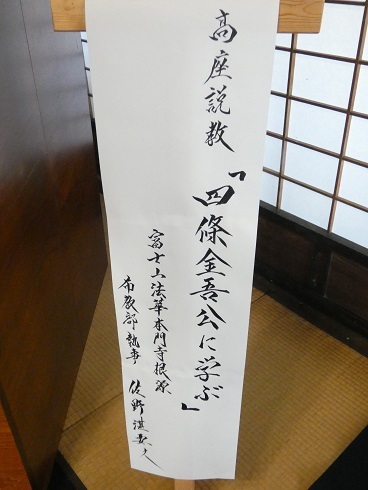 高座説教
「四條金吾公に学ぶ」
富士山法華本門寺根源
布教部執事 佐野湛要